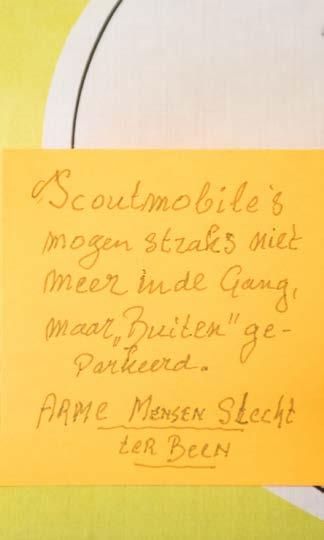 Scoutmobile's
mogen straks niet
meer in de Gang,
maar „Buiten" ge-
parkeerd.
ARME MENSEN Slecht
ter BEEN